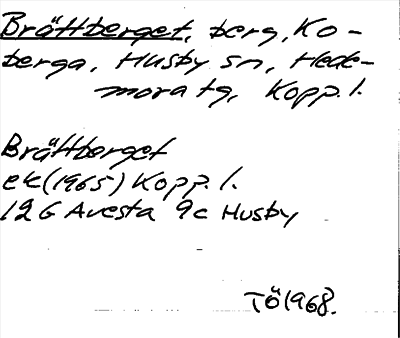 Brättberget, berg, Ko-
berga, Husby sn, Hede-
mora tg, Kopp. l.
Brättberget
ek (1965) Kopp. l.
12G Avesta 9c Husby
TÖ 1968.